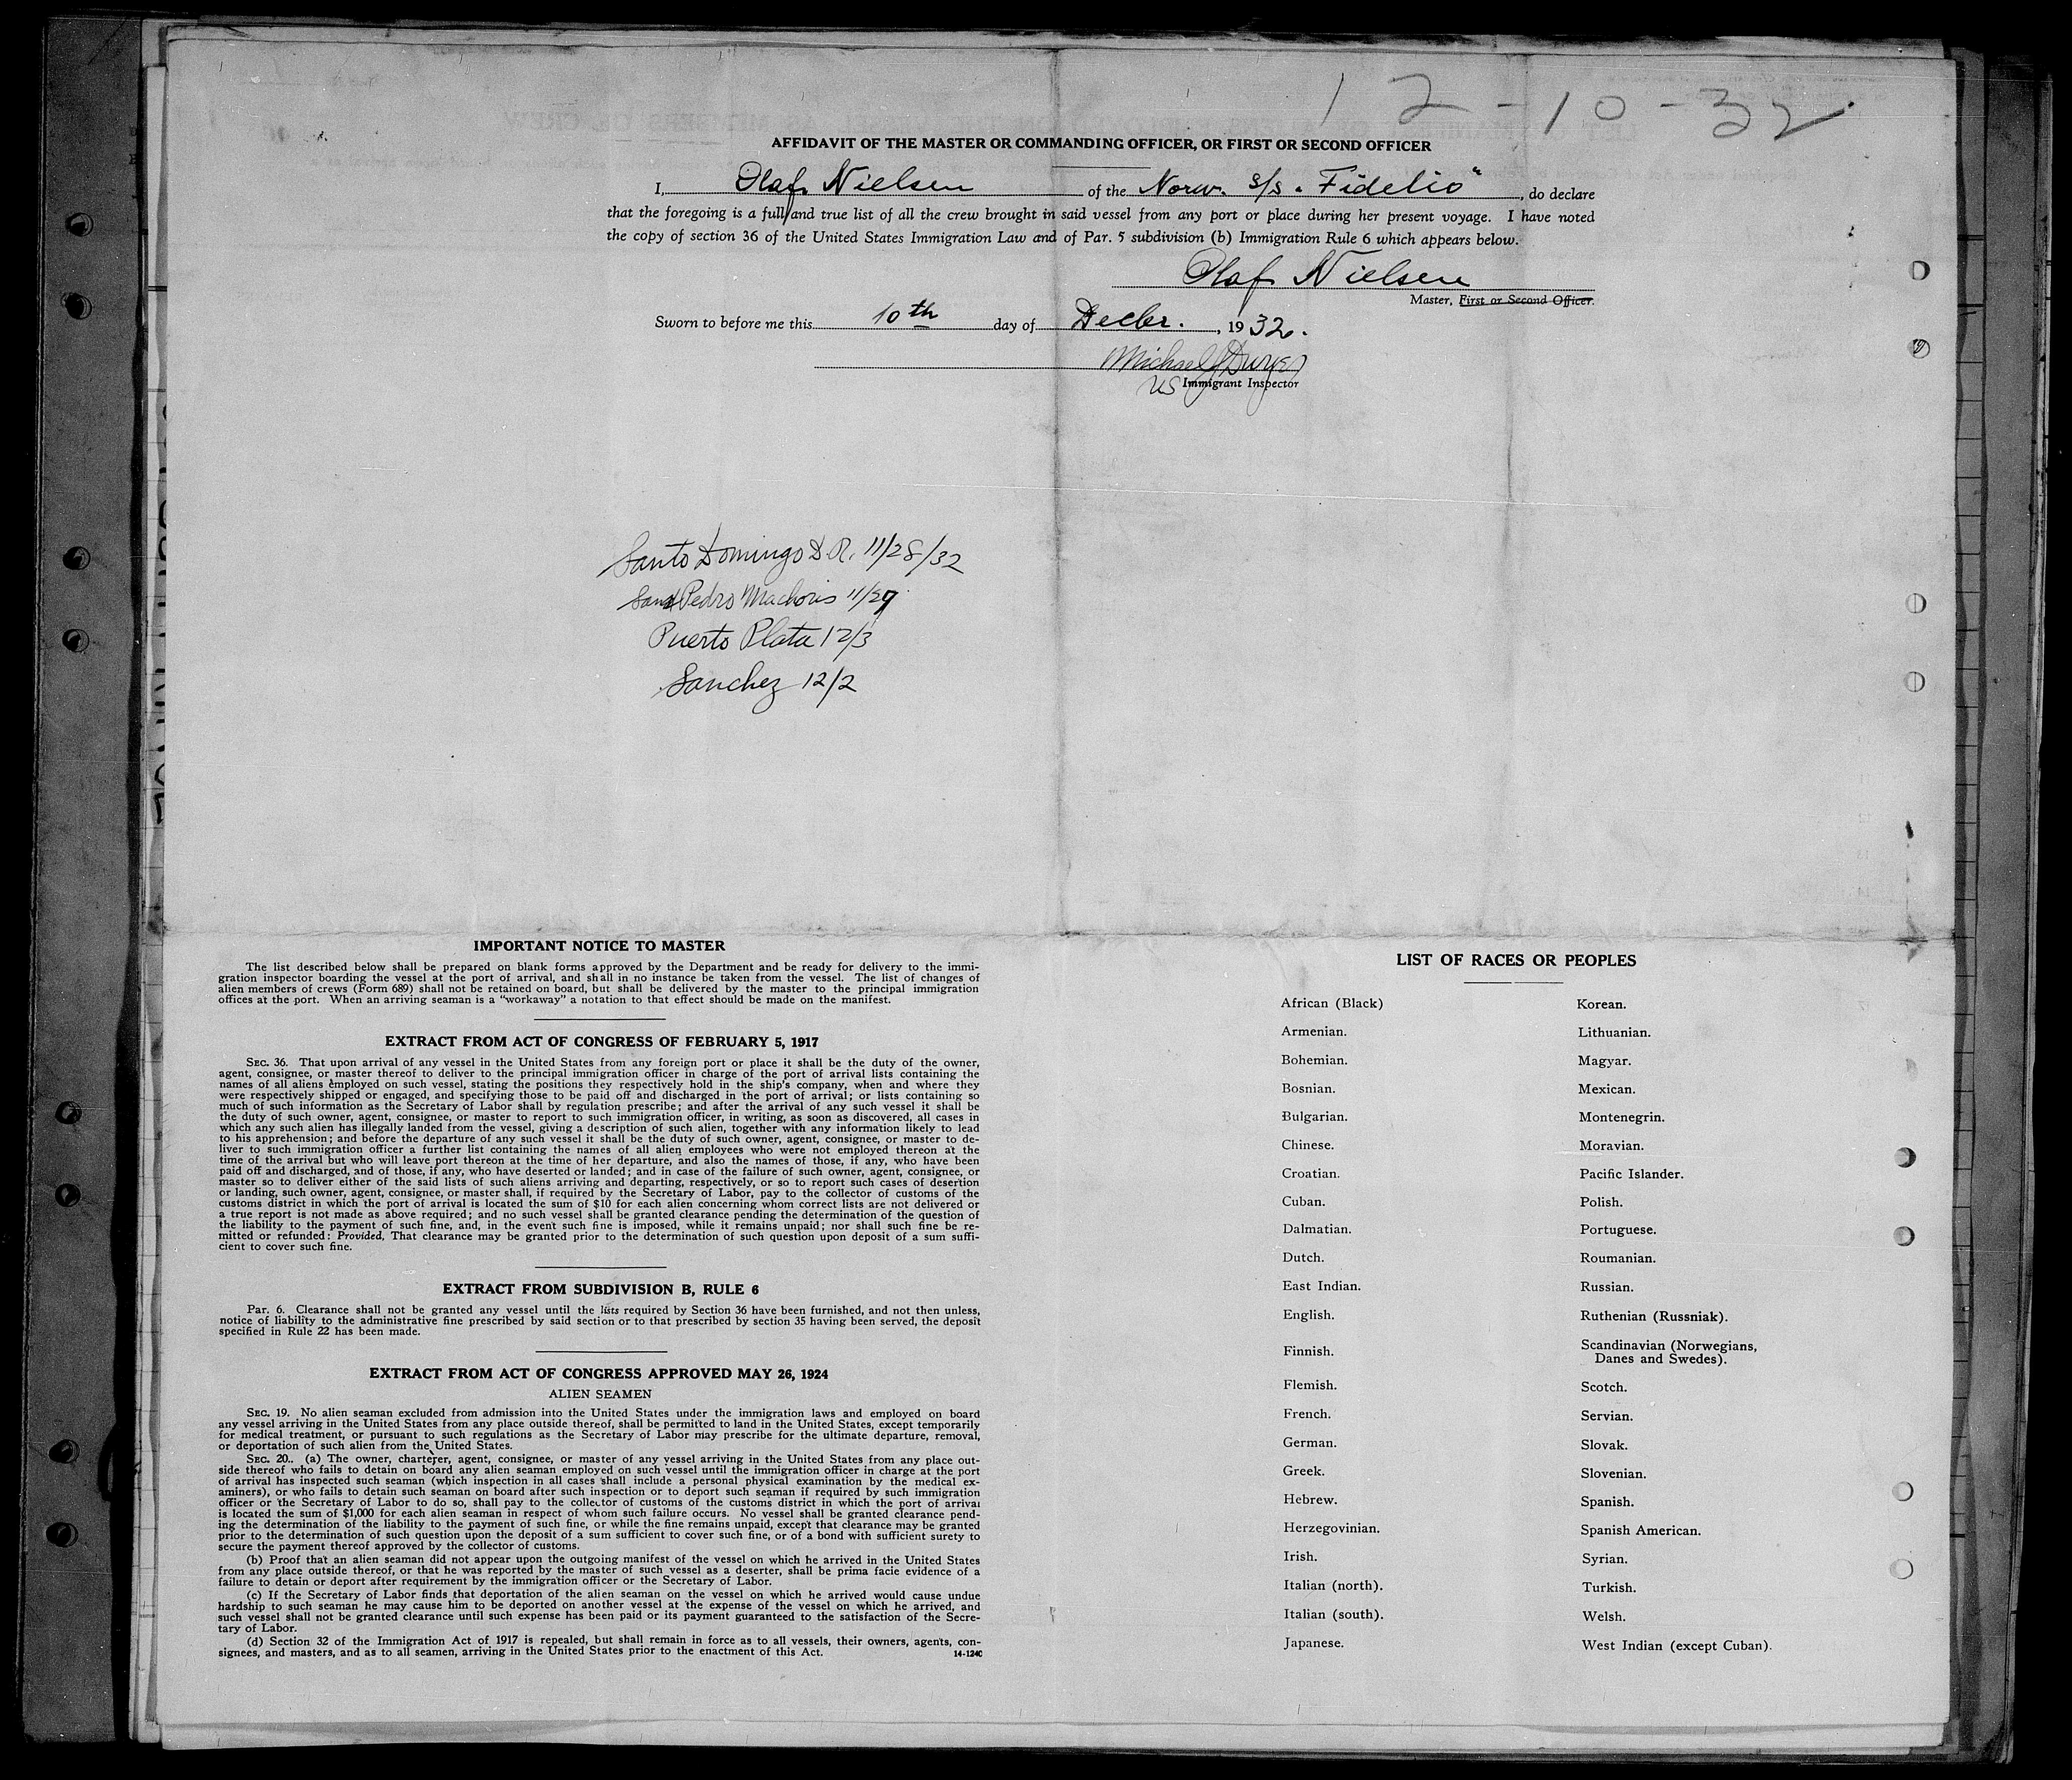 12-10-32
AFFIDAVIT OF THE MASTER OR COMMANDING OFFICER, OR FIRST OR SECOND OFFICER
I, Olaf Nielsen of the Norw. s/s "Fidelio", do declare
that the foregoing is a full and true list of all the crew brought in said vessel from any port or place during her present voyage. I have noted
the copy of section 36 of the United States Immigration Law and of Par. 5 subdivision (b) Immigration Rule 6 which appears below.
Olaf Nielsen
Master, First or Second Officer.
Sworn to before me this 10th day of Decbr., 1932.
Michael J Dwyer
US Immigrant Inspector
Santo Domingo D.R. 11/28/32
San Pedro Machoris 11/29
Puerto Plata 12/3
Sanchez 12/2
IMPORTANT NOTICE TO MASTER
The list described below shall be prepared on blank forms approved by the Department and be ready for delivery to the immi-
gration inspector boarding the vessel at the port of arrival, and shall in no instance be taken from the vessel. The list of changes of
alien members of crews (Form 689) shall not be retained on board, but shall be delivered by the master to the principal immigration
offices at the port. When an arriving seaman is a "workaway" a notation to that effect should be made on the manifest.
EXTRACT FROM ACT OF CONGRESS OF FEBRUARY 5, 1917
SEC. 36. That upon arrival of any vessel in the United States from any foreign port or place it shall be the duty of the owner,
agent, consignee, or master thereof to deliver to the principal immigration officer in charge of the port of arrival lists containing the
names of all aliens employed on such vessel, stating the positions they respectively hold in the ship's company, when and where they
were respectively shipped or engaged, and specifying those to be paid off and discharged in the port of arrival; or lists containing so
much of such information as the Secretary of Labor shall by regulation prescribe; and after the arrival of any such vessel it shall be
the duty of such owner, agent, consignee, or master to report to such immigration officer, in writing, as soon as discovered, all cases in
which any such alien has illegally landed from the vessel, giving a description of such alien, together with any information likely to lead
to his apprehension; and before the departure of any such vessel it shall be the duty of such owner, agent, consignee, or master to de-
liver to such immigration officer a further list containing the names of all alien employees who were not employed thereon at the
time of the arrival but who will leave port thereon at the time of her departure, and also the names of those, if any, who have been
paid off and discharged, and of those, if any, who have deserted or landed; and in case of the failure of such owner, agent, consignee, or
master so to deliver either of the said lists of such aliens arriving and departing, respectively, or so to report such cases of desertion
or landing, such owner, agent, consignee, or master shall, if required by the Secretary of Labor, pay to the collector of customs of the
customs district in which the port of arrival is located the sum of $10 for each alien concerning whom correct lists are not delivered or
a true report is not made as above required; and no such vessel shall be granted clearance pending the determination of the question of
the liability to the payment of such fine, and, in the event such fine is imposed, while it remains unpaid; nor shall such fine be re-
mitted or refunded: Provided, That clearance may be granted prior to the determination of such question upon deposit of a sum suffi-
cient to cover such fine.
EXTRACT FROM SUBDIVISION B, RULE 6
Par. 6. Clearance shall not be granted any vessel until the lists required by Section 36 have been furnished, and not then unless,
notice of liability to the administrative fine prescribed by said section or to that prescribed by section 35 having been served, the deposit
specified in Rule 22 has been made.
EXTRACT FROM ACT OF CONGRESS APPROVED MAY 26, 1924
ALIEN SEAMEN
SEC. 19. No alien seaman excluded from admission into the United States under the immigration laws and employed on board
any vessel arriving in the United States from any place outside thereof, shall be permitted to land in the United States, except temporarily
for medical treatment, or pursuant to such regulations as the Secretary of Labor may prescribe for the ultimate departure, removal,
or deportation of such alien from the United States.
SEC. 20.. (a) The owner, charterer, agent, consignee, or master of any vessel arriving in the United States from any place out-
side thereof who fails to detain on board any alien seaman employed on such vessel until the immigration officer in charge at the port
of arrival has inspected such seaman (which inspection in all cases shall include a personal physical examination by the medical ex-
aminers), or who fails to detain such seaman on board after such inspection or to deport such seaman if required by such immigration
officer or the Secretary of Labor to do so, shall pay to the collector of customs of the customs district in which the port of arrival
is located the sum of $1,000 for each alien seaman in respect of whom such failure occurs. No vessel shall be granted clearance pend-
ing the determination of the liability to the payment of such fine, or while the fine remains unpaid, except that clearance may be granted
prior to the determination of such question upon the deposit of a sum sufficient to cover such fine, or of a bond with sufficient surety to
secure the payment thereof approved by the collector of customs.
(b) Proof that an alien seaman did not appear upon the outgoing manifest of the vessel on which he arrived in the United States
from any place outside thereof, or that he was reported by the master of such vessel as a deserter, shall be prima facie evidence of a
failure to detain or deport after requirement by the immigration officer or the Secretary of Labor.
(c) If the Secretary of Labor finds that deportation of the alien seaman on the vessel on which he arrived would cause undue
hardship to such seaman he may cause him to be deported on another vessel at the expense of the vessel on which he arrived, and
such vessel shall not be granted clearance until such expense has been paid or its payment guaranteed to the satisfaction of the Secre-
tary of Labor.
(d) Section 32 of the Immigration Act of 1917 is repealed, but shall remain in force as to all vessels, their owners, agents, con-
signees, and masters, and as to all seamen, arriving in the United States prior to the enactment of this Act.
14-1240
LIST OF RACES OR PEOPLES
African (Black)
Armenian.
Bohemian.
Bosnian.
Bulgarian.
Chinese.
Croatian.
Cuban.
Dalmatian.
Dutch.
East Indian.
English.
Finnish.
Flemish.
French.
German.
Greek.
Hebrew.
Herzegovinian.
Irish.
Italian (north).
Italian (south).
Japanese.
Korean.
Lithuanian.
Magyar.
Mexican.
Montenegrin.
Moravian.
Pacific Islander.
Polish.
Portuguese.
Roumanian.
Russian.
Ruthenian (Russniak).
Scandinavian (Norwegians,
Danes and Swedes).
Scotch.
Servian.
Slovak.
Slovenian.
Spanish.
Spanish American.
Syrian.
Turkish.
Welsh.
West Indian (except Cuban).